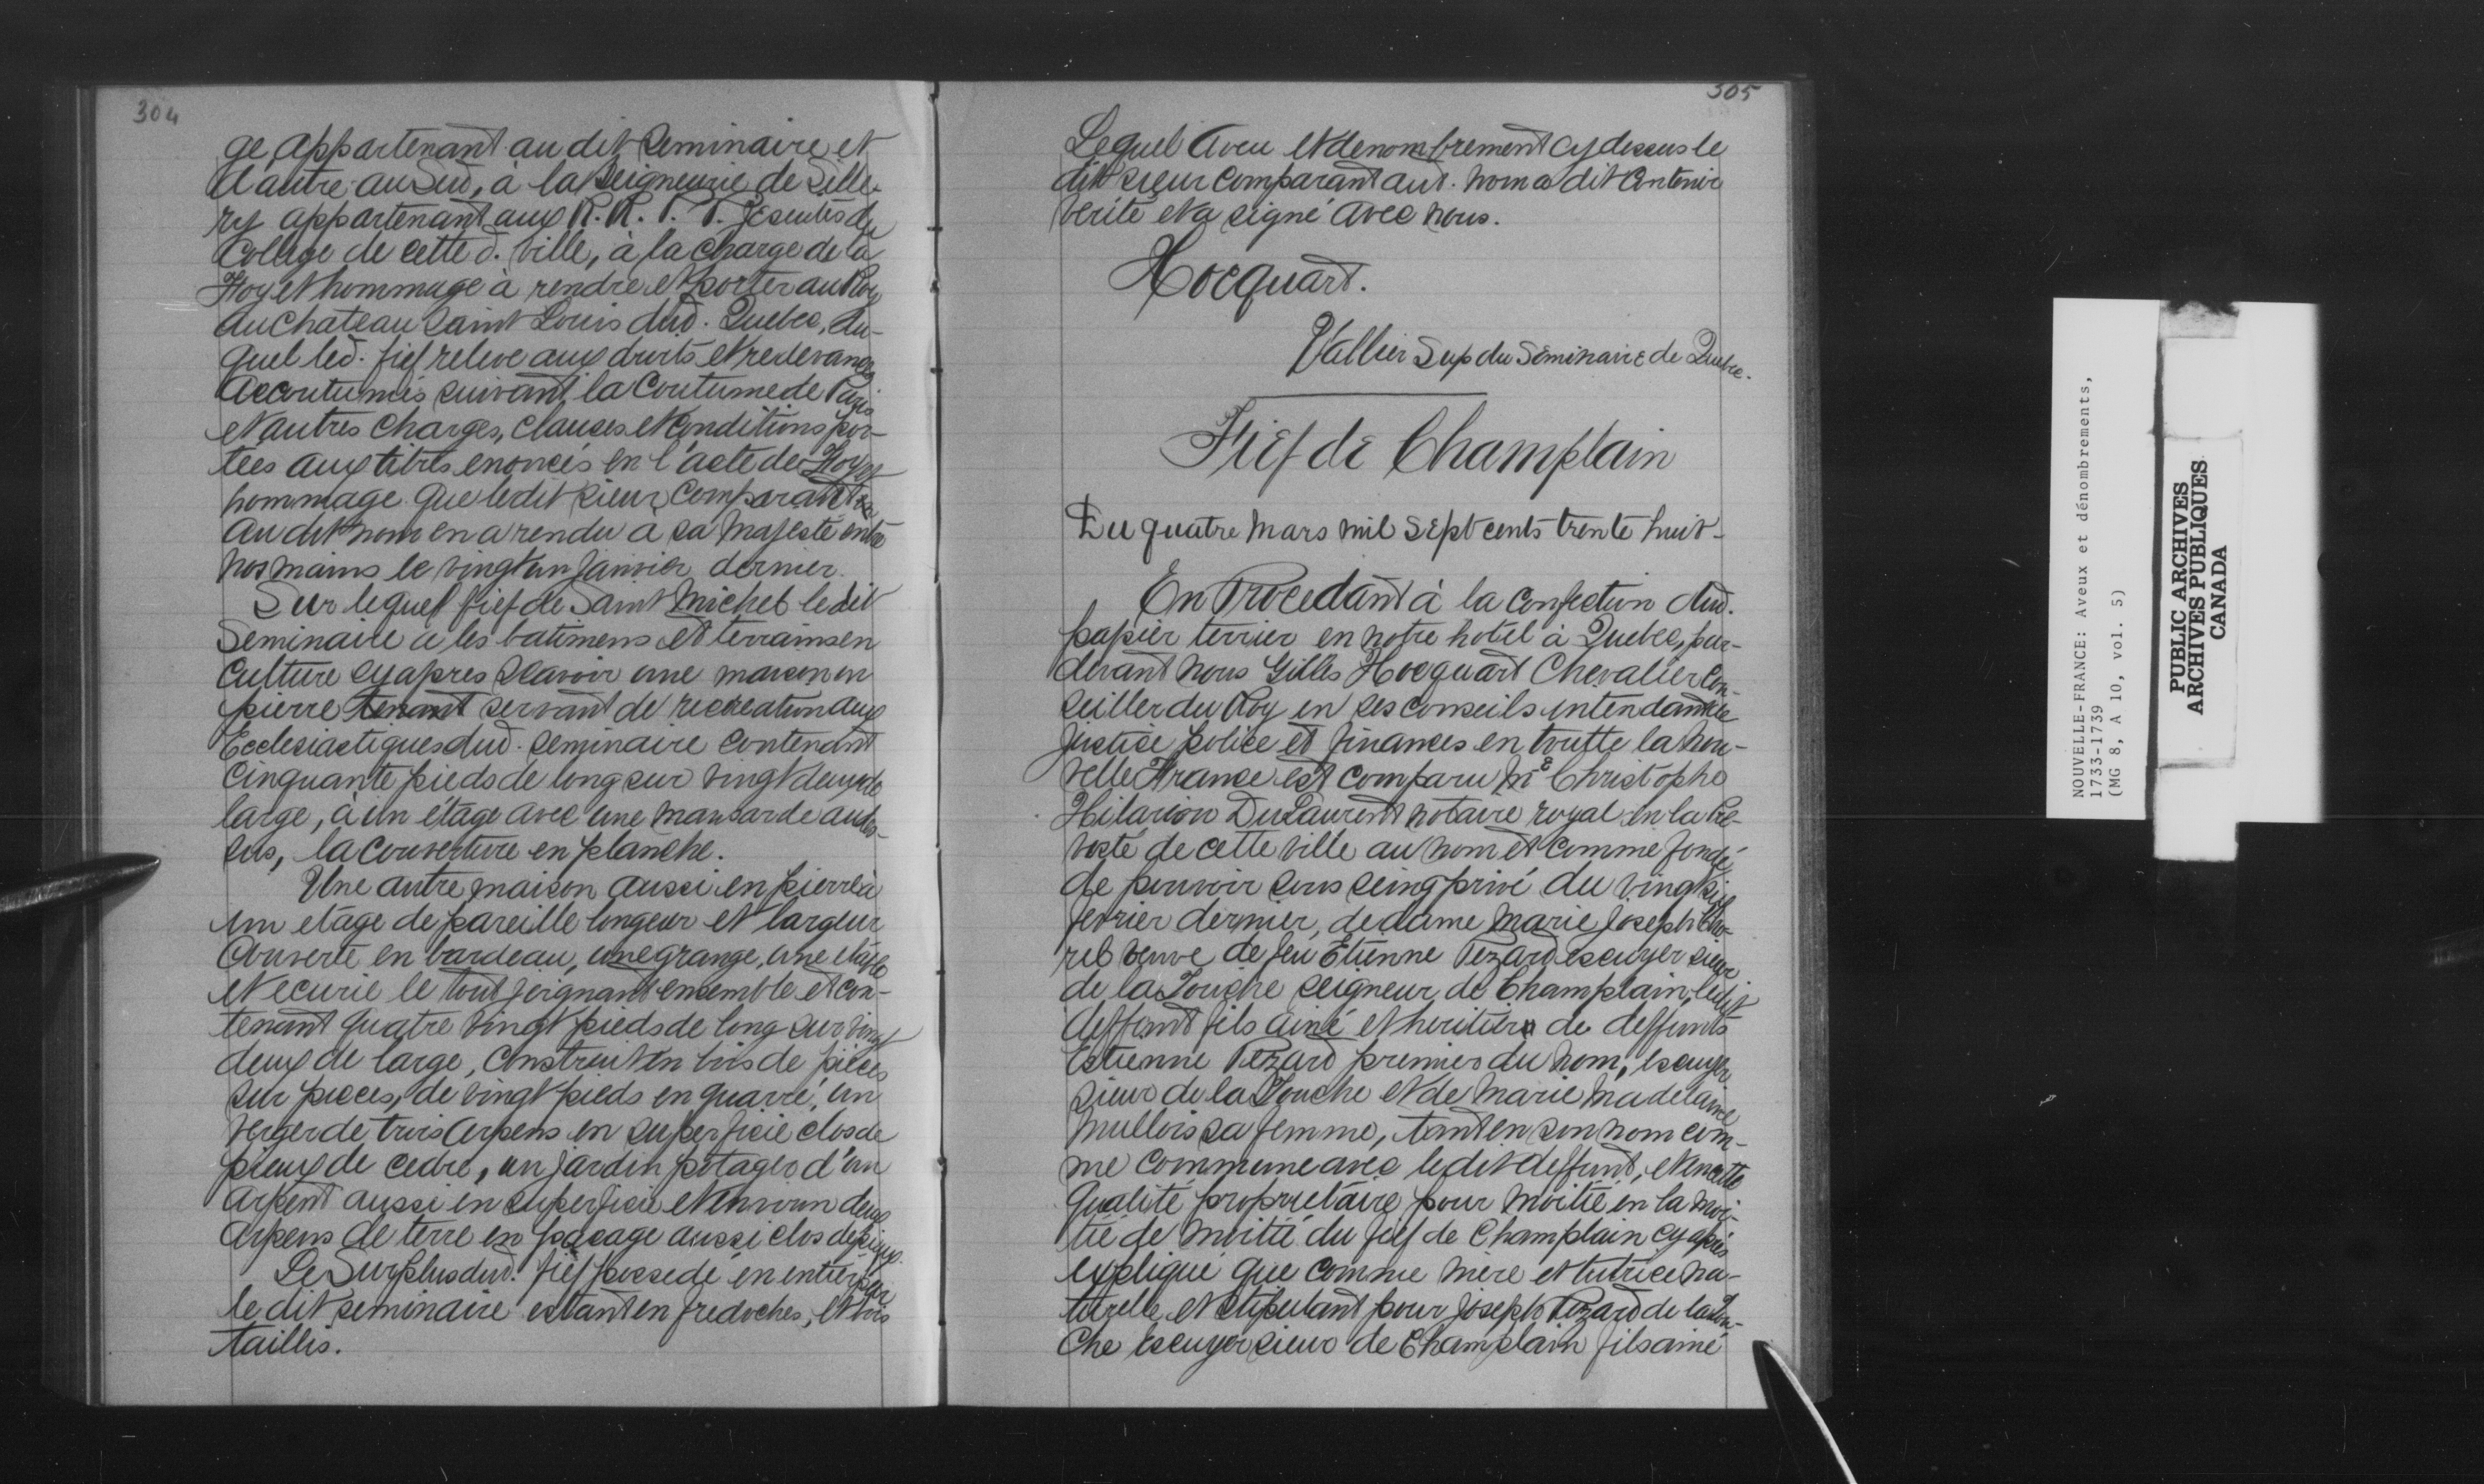 304
ge, appartenant au dit Seminaire et
d'autre au Sud, à la Seigneurie de Sille-
ry appartenant aux R. R. P. P. Jesuites du
College de cette d. ville, à la charge de la
Foy et hommage à rendre et porter au Roy
au Chateau Saint Louis dud. Quebec, du-
quel led. fief releve aux droits et redevances
accoutumés suivant la Coutume de Paris
et autres charges, clauses et conditions por-
tées aux titres enoncés en l'acte de Foy et
hommage que ledit sieur comparant
au dit nom en a rendu a sa Majesté entre
nos mains le vingt un Janvier dernier.
Sur lequel fief de Saint Michel le dit
Seminaire a les batimens et terrains en
culture cy apres Scavoir une maison en
pierre tenant servant de recreation aux
Ecclesiastiques dud. Seminaire contenant
cinquante pieds de long sur vingt deux de
large, à un étage avec une mansarde audes-
sus, la couverture en planche.
Une autre maison aussi en pierre à
un etage de pareille longeur et largeur
couverte en bardeau, une grange, une etable
et ecurie le tout joignant ensemble et con-
tenant quatre vingt pieds de long sur vingt
deux de large, construit en bois de pieces
sur pieces, de vingt pieds en quarré, un
verger de trois arpens en superficie clos de
pieux de cedre, un jardin potager d'un
arpent aussi en superficie et environ deux
arpens de terre en pacage aussi clos de pieux.
Le Surplus dud. fief possedé en entier par
le dit seminaire estant en fredoches, et bois
taillis.
305
Lequel aveu et denombrement cy dessus le
dit sieur comparant aud. nom a dit contenir
verité et a signé avec nous.
Hocquart.
Vallier Sup du Séminaire de Quebec.
Fief de Champlain
Du quatre mars mil sept cents trente huit-
En Procedant à la confection dud.
papier terrier en notre hotel à Quebec, par-
devant nous Gilles Hocquart Chevalier Con-
seiller du Roy en ses conseils intendant de
justice police et finances en toutte la Nou-
velle France est comparu Me Christophe
Hilarion DuLaurent notaire royal en la Pre-
vosté de cette ville au nom et comme fondé
de pouvoir sous seing privé du vingt six
fevrier dernier, de dame Marie Joseph Cho-
rel veuve de feu Etienne Pezard escuyer sieur
de la Touche seigneur de Champlain, ledit
deffunt fils ainé et heritier de deffunts
Estienne Pezard premier du nom, escuyer
sieur de la Touche et de Marie Madelaine
Mullois sa femme, tant en son nom com-
me commune avec le dit deffunt, et en cette
qualité proprietaire pour moitié en la moi-
tié de moitié du fief de Champlain cy après
expliqué que comme mère et tutrice na-
turelle, et stipulant pour Joseph Pezard de la Tou-
che Escuyer sieur de Champlain fils ainé
NOUVELLE-FRANCE: Aveux et dénombrements,
1733-1739
(MG 8, A 10, vol. 5)
PUBLIC ARCHIVES
ARCHIVES PUBLIQUES
CANADA